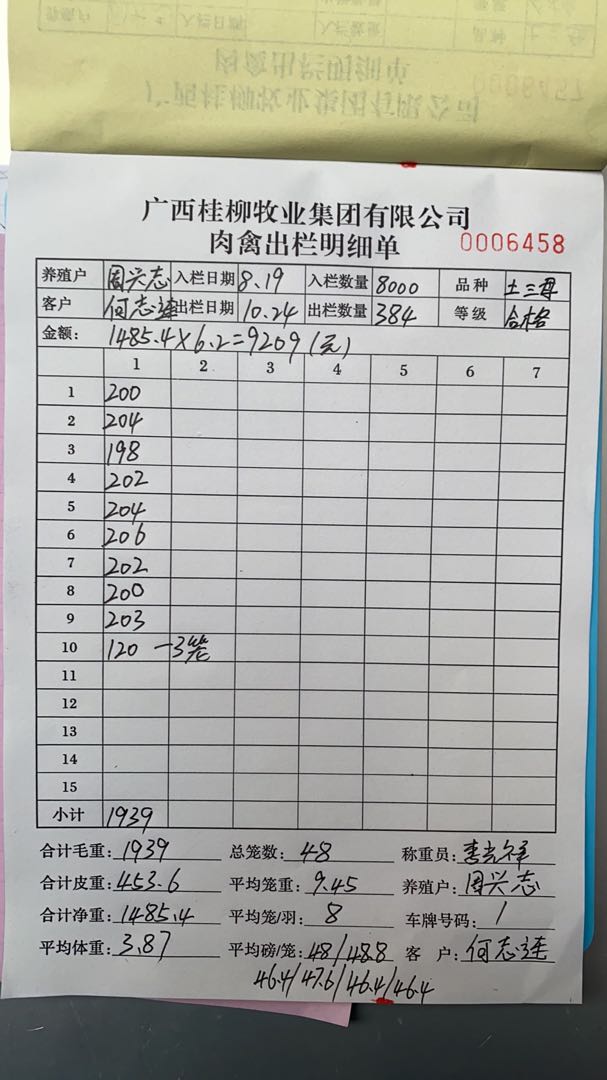 广西桂柳牧业集团有限公司
肉禽出栏明细单 0006458
养殖户 周兴志 入栏日期 8.19 入栏数量 8000 品种 土三母
客户 何志连 出栏日期 10.24 出栏数量 384 等级 合格
金额: 1485.4×6.2=9209(元)
1 2 3 4 5 6 7
1 200
2 204
3 198
4 202
5 204
6 206
7 202
8 200
9 203
10 120 一3笼
11
12
13
14
15
小计 1939
合计毛重: 1939 总笼数: 48 称重员:
合计皮重: 453.6 平均笼重: 9.45 养殖户: 周兴志
合计净重: 1485.4 平均笼/羽: 8 车牌号码: /
平均体重: 3.87 平均磅/笼: 48/48.8 客 户: 何志连
46.4/47.6/46.4/46.4